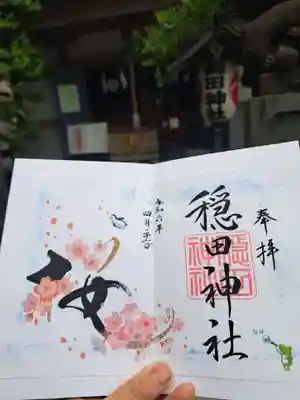 奉拝
穏田神社
穏田
神社
令和六年
四月二十二日
桜
田神社